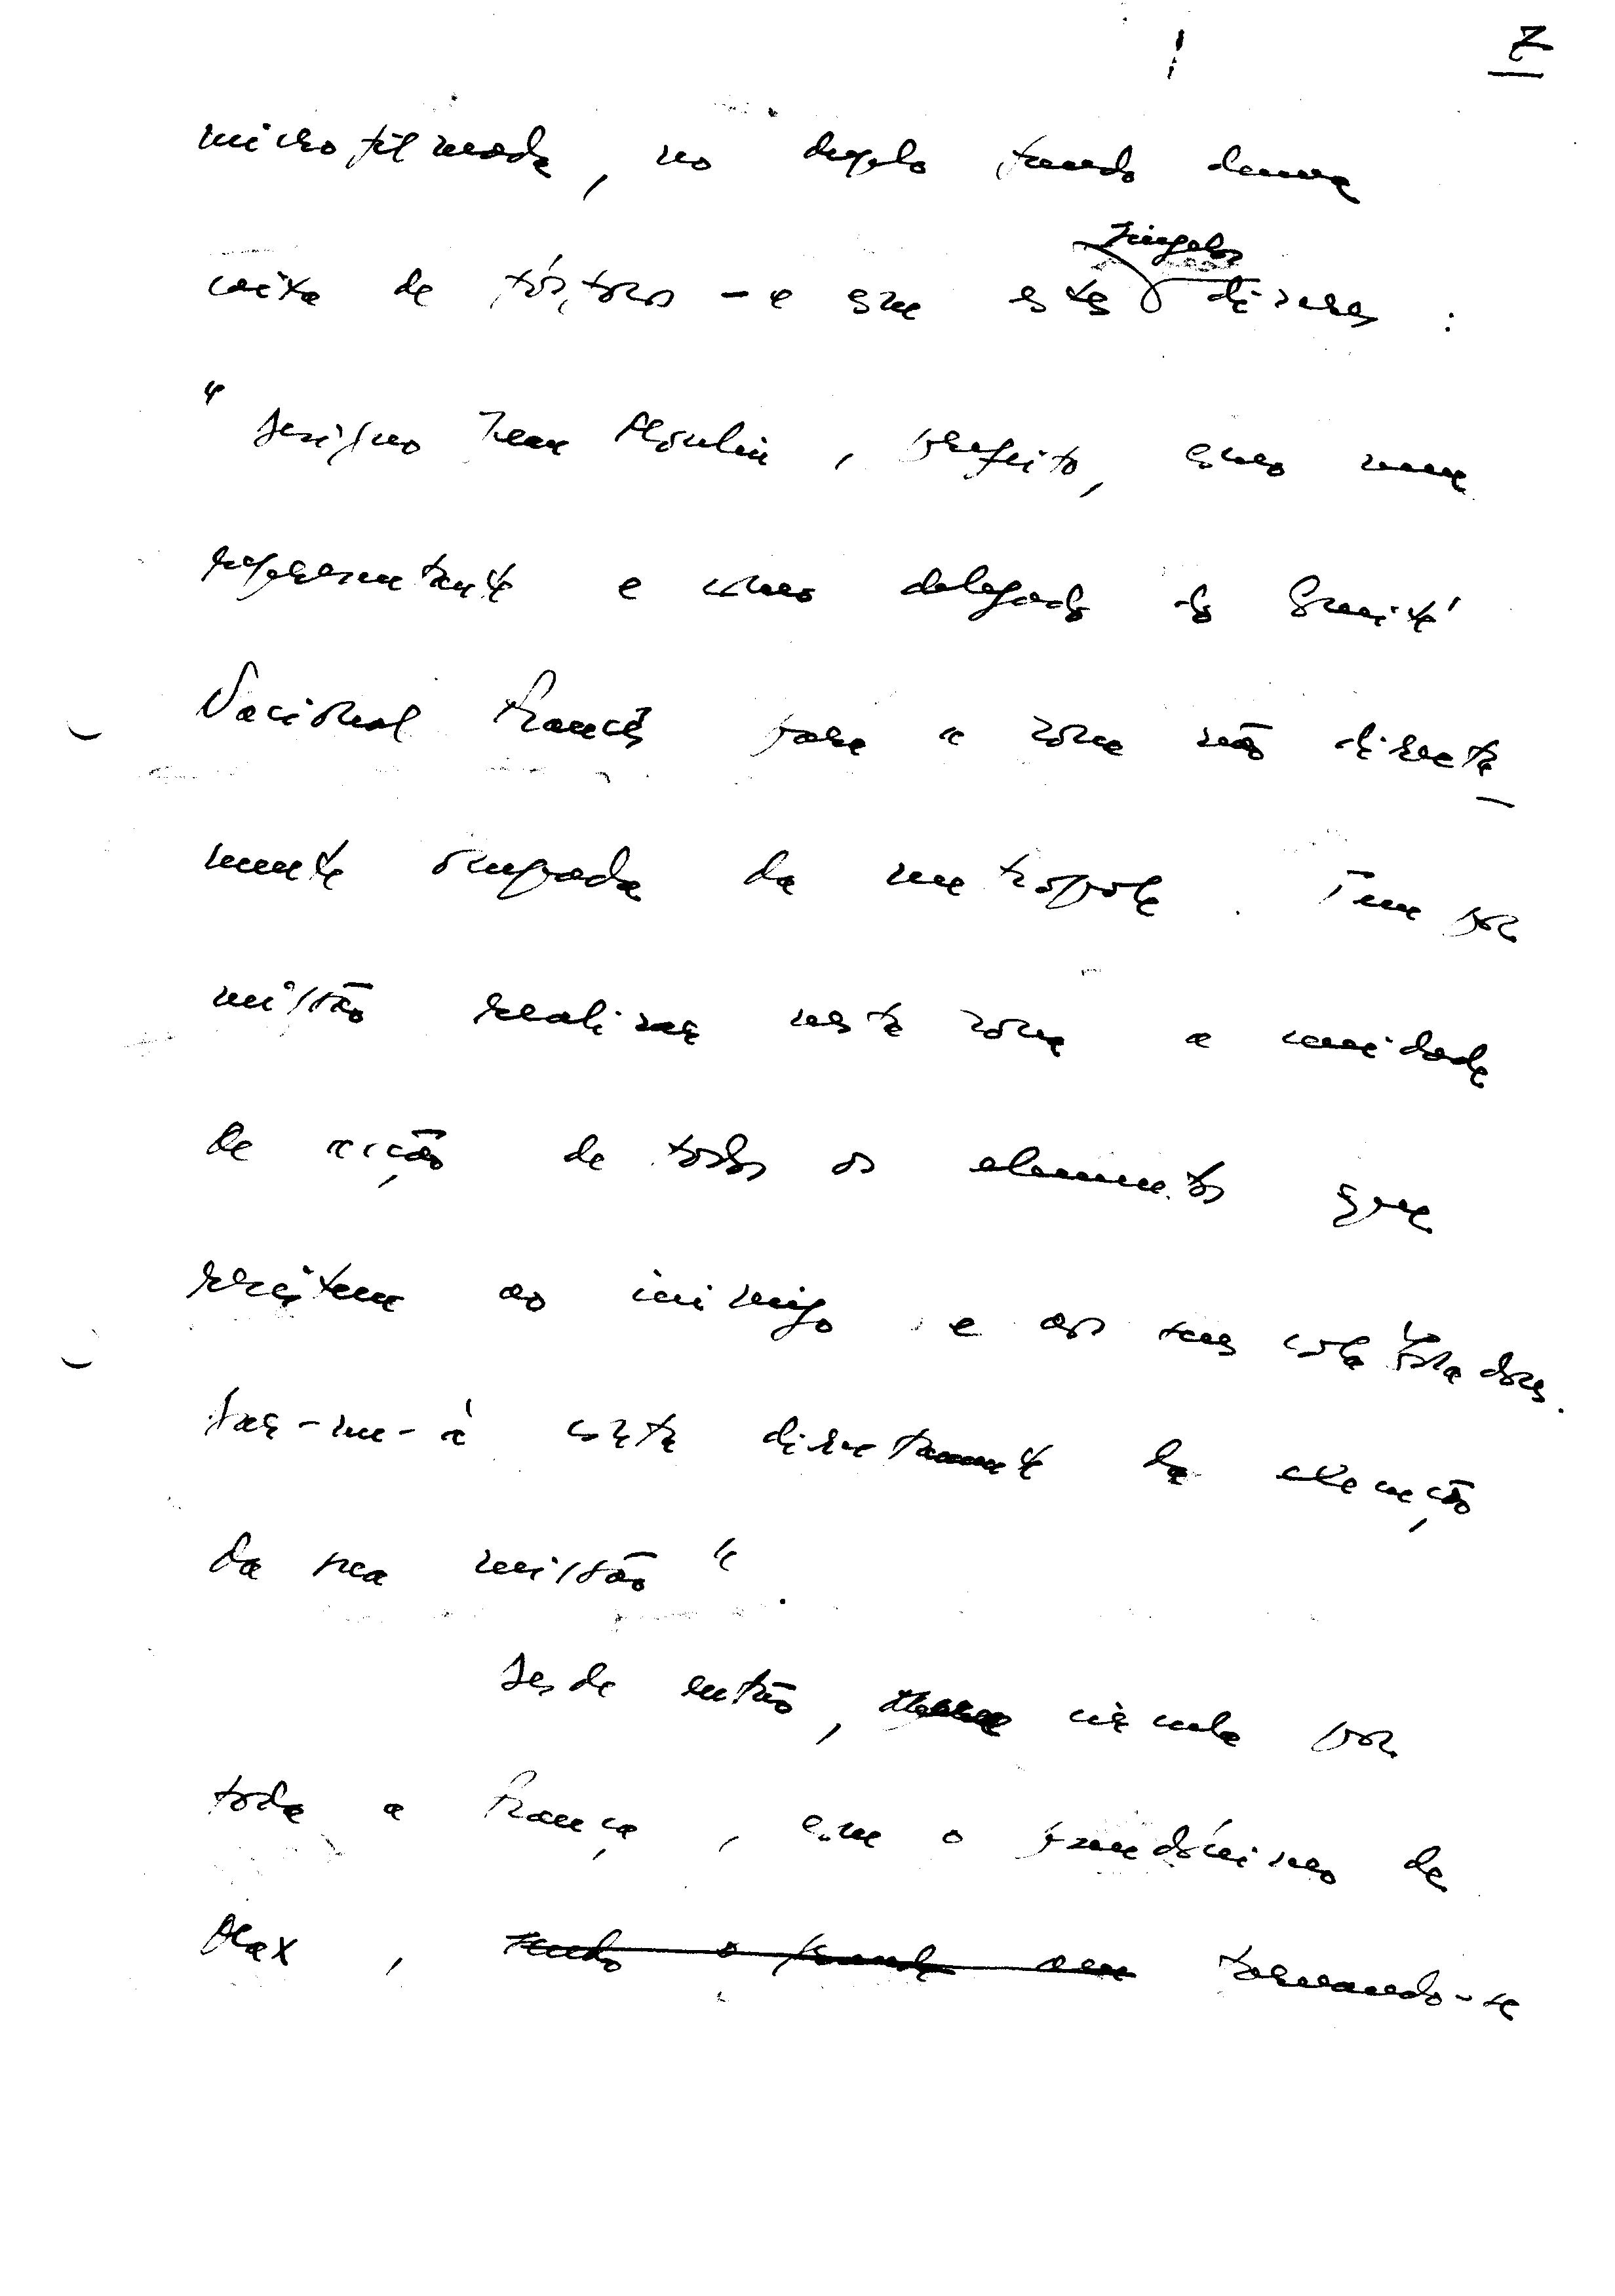 7
microfilmada, no duplo fundo duma
singelos
caixa de fósforos - e com estes dizeres :
"Designo Jean Moulin, prefeito, como meu
representante e como delegado do Comité
Nacional Francês para a zona não directa-
mente ocupada da metrópole. Tem por
missão realizar nesta zona a unidade
de acção de todos os elementos que
resistem ao inimigo e aos seus colaboradores.
Dar-me-á conta directamente da execução
da sua missão".
Desde então, circula por
toda a França, com o pseudónimo de
Max, sendo o grande em tornando-se